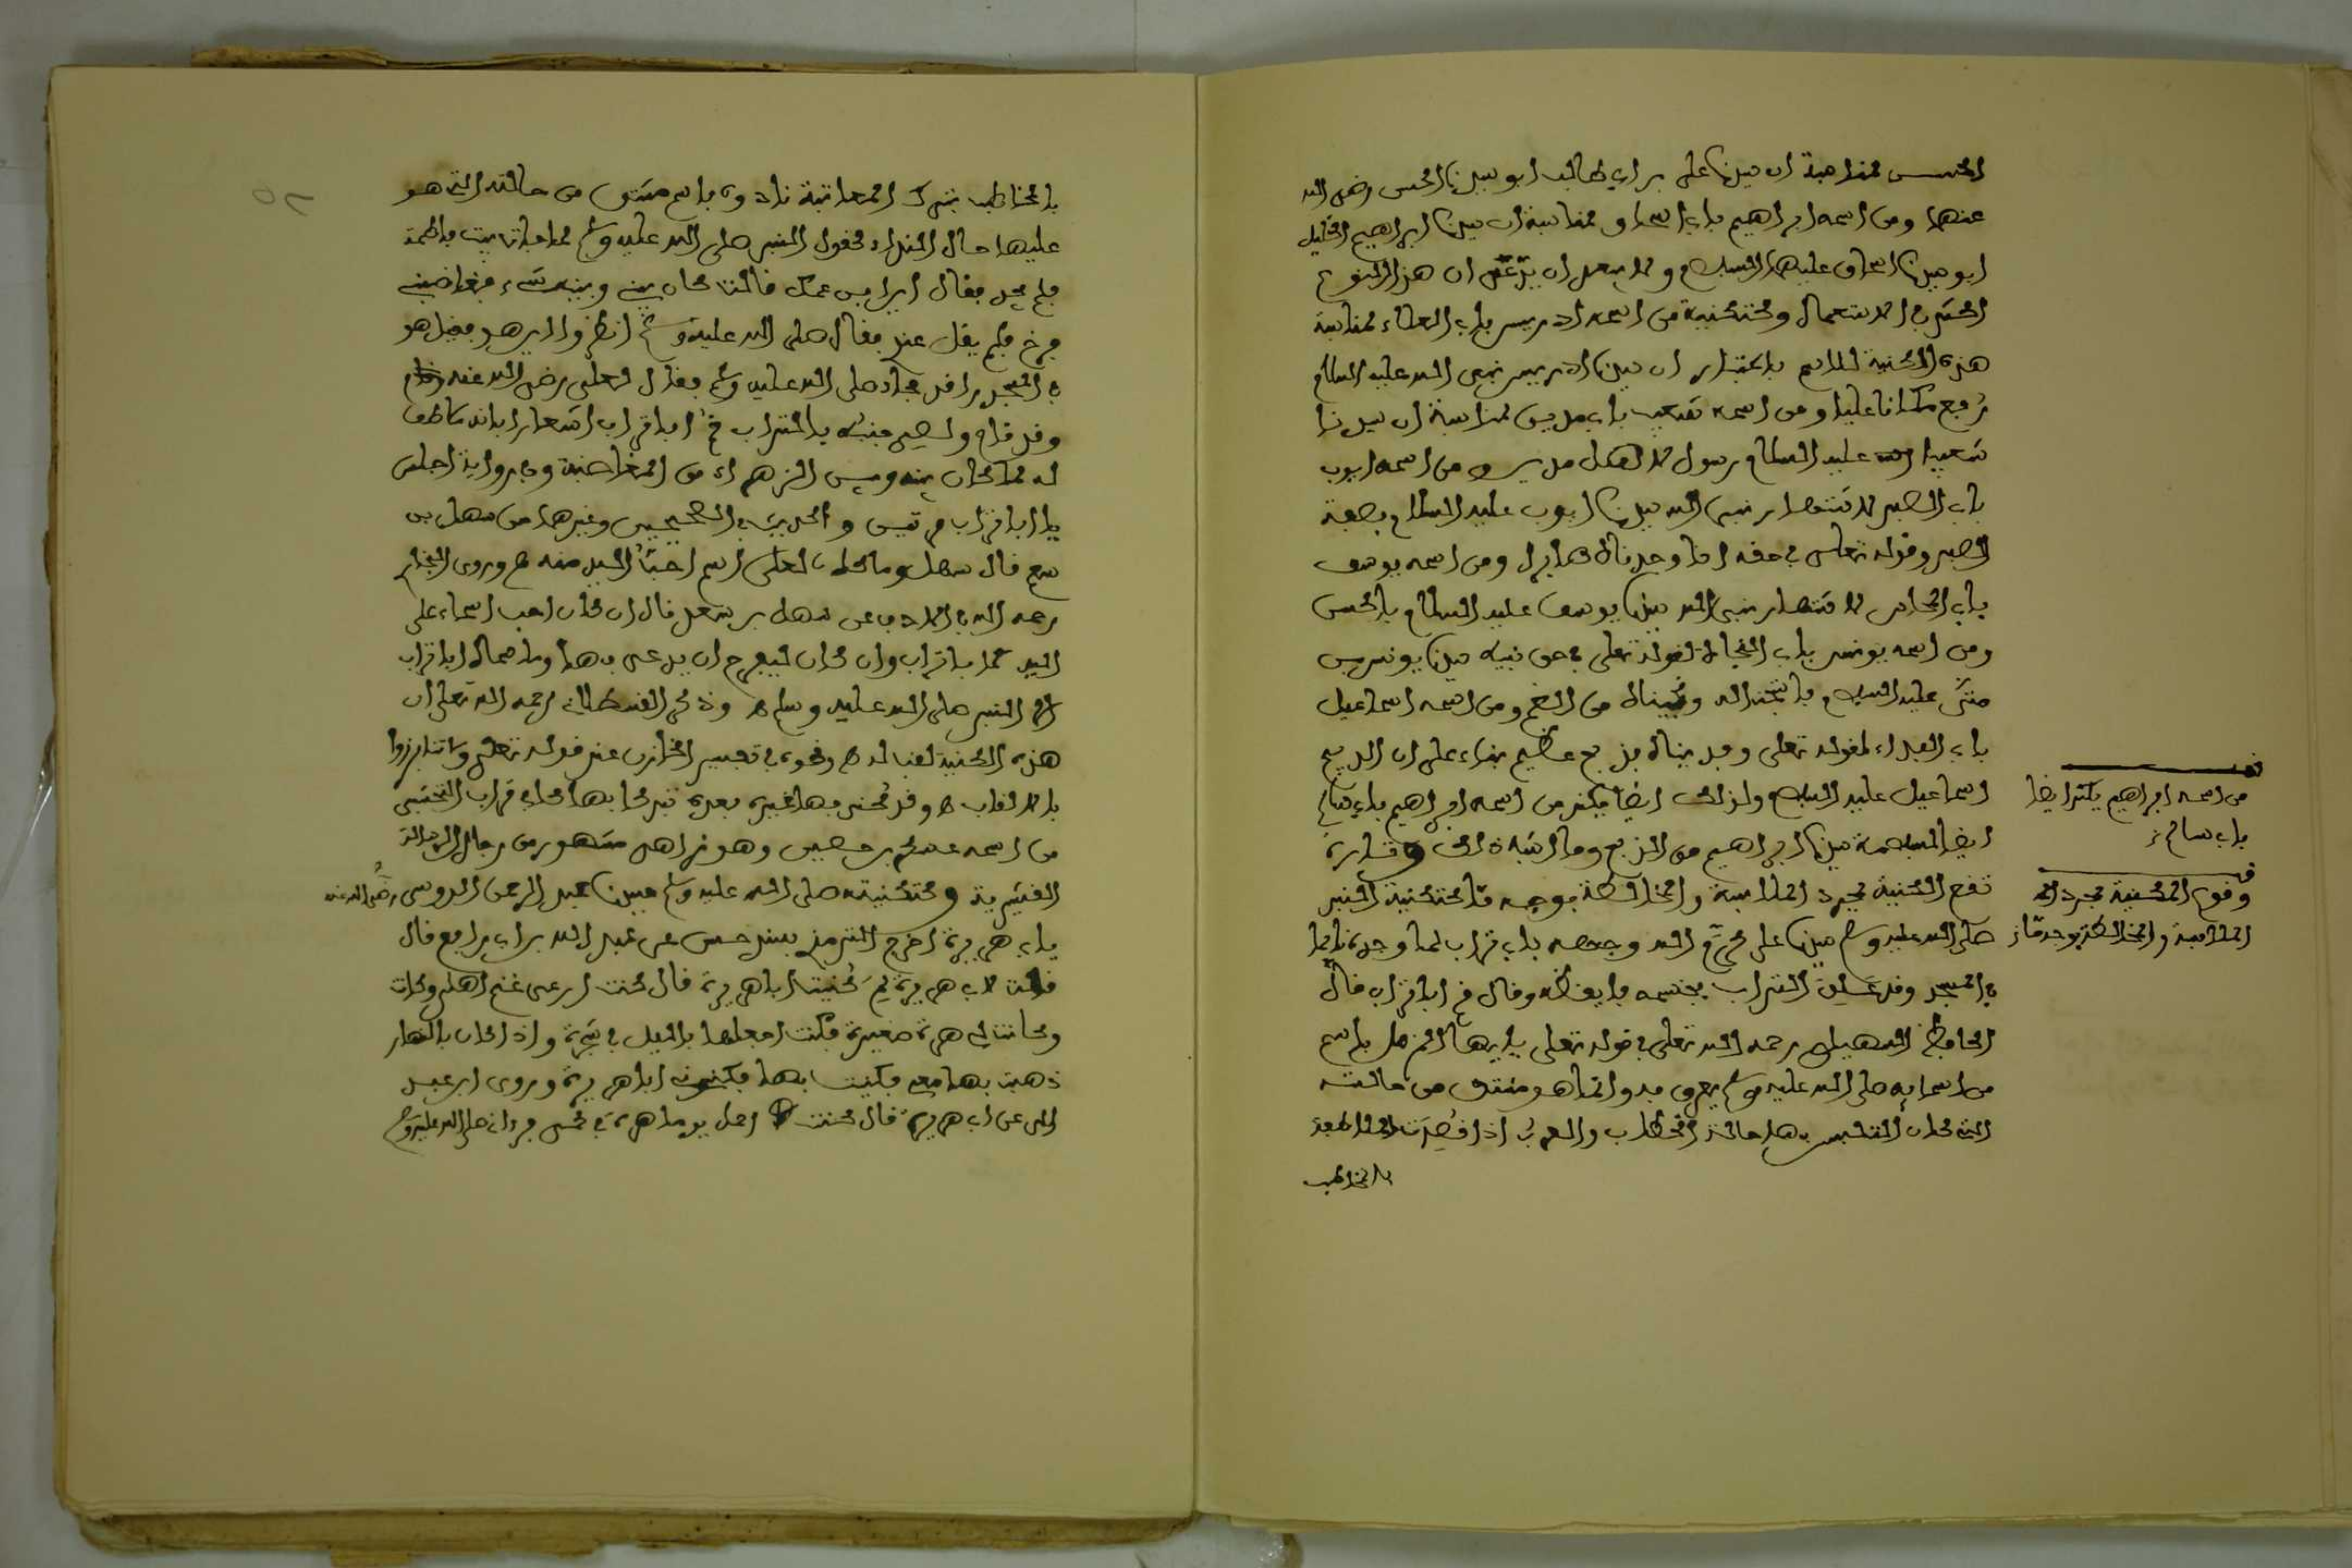 الحسن لمناسبة ان سيدنا على بن ابي طالب ابو سيدنا الحسن رضى الله
عنهما ومن اسمه ابراهيم بابي اسحاق لمناسبة ان سيدنا ابراهيم الخليل
ابو سيدنا اسحاق عليهما السلام ولا يبعد ان يدّعى ان هذا النوع
اكثرى الاستعمال وكتكنية من اسمه ادريس بابي العلاء لمناسبة
هذه الكنية للاسم باعتبار ان سيدنا ادريس نبى الله عليه السلام
رُفع مكانا عليا ومن اسمه شعيب بابى مدين لمناسبة ان سيدنا
شعيبا عليه السلام رسول لاهل مدين ومن اسمه ايوب
بابى الصبر لاشتهار نبى الله سيدنا ايوب عليه السلام بصفة
الصبر وقوله تعالى فى حقه انا وجدناه صابرا ومن اسمه يوسف
بابى المحاسن لاشتهار نبى الله سيدنا يوسف عليه السلام بالحسن
ومن اسمه يونس بابى النجاة لقوله تعلى فى حق نبيه سيدنا يونس بن
متّى عليه السلام فاستجبنا له ونجيناه من الغم ومن اسمه اسماعيل
بابى الفداء لقوله تعلى وفديناه بذبح عظيم بناء على ان الذبيح
اسماعيل عليه السلام ولذلك ايضا يكنى من اسمه ابراهيم بابى سالم
ايضا لسلامة سيدنا ابراهيم من الذبح وما اشبه ذلك وتارة
تقع الكنية لمجرد الملابسة والمخالطة بوجه مّا كتكنية النبى
صلى الله عليه وسلم سيدنا على كرّم الله وجهه بابى تراب لما وجده نايما
فى المسجد وقد علق التراب بجنبه فايقظه وقال قم ابا تراب قال
الحافظ السهيلى رحمه الله تعلى فى قوله تعلى يا ايها المزمل ياسم
من اسمايه صلى الله عليه وسلم يعرف به وانما هو مشتق من حالته
التى كان المتلبس بها حالة الخطاب والعرب اذا قصدت الملاطفة
بالمخاطب
من اسمه ابراهيم يكنى ايضا
بابى سالم
قف
وقوع الكنية لمجرد
الملابسة والمخالطة بوجه مّا
بالمخاطب بترك المعاتبة نادوه باسم مشتق من حالته التى هو
عليها حال النداء كقول النبى صلى الله عليه وسلم لما جاء بيت فاطمة
فلم يجد فقال اين ابن عمك قالت كان بينى وبينه شىء فغاضبنى
فخرج فلم يقل عندى فقال صلى الله عليه وسلم انظروا اين هو فقيل هو
فى المسجد راقد فجاء صلى الله عليه وسلم فقال لعلى رضى الله عنه
وقد نام ولصق جنبه بالتراب قم ابا تراب اشعارا بانه ملاطف
له لما كان بينه وبين الزهراء من المغاضبة وفى رواية اجلس
يا ابا تراب مرتين والحديث فى الصحيحين وغيرهما من سهل بن
سعد قال سهل وما كان لعلى اسم احبّ اليه منه وروى البخارى
رحمه الله فى الادب عن سهل بن سعد قال ان كان احب اسماء على
اليه لابا تراب وان كان ليفرح ان يدعى بها وما سماه ابا تراب
الا النبى صلى الله عليه وسلم وذكر القسطلانى رحمه الله تعلى ان
هذه الكنية لقبا له ونحوه فى تفسير الخازن عند قوله تعلى ولا تنابزوا
بالالقاب وقد كنى بها غيره بعده تبركا بها كابى تراب النخشبى
من اسمه عسكر بن حصين وهو زاهد مشهور من رجال الرسالة
القشيرية وكتكنيته صلى الله عليه وسلم سيدنا عبد الرحمن الدوسى رضى الله عنه
بابى هريرة اخرج الترمذى بسند حسن عن عبد الله بن ابى رافع قال
قلت لابى هريرة لِمَ كُنيت ابا هريرة قال كنت ارعى غنم اهلى وكانت
وكانت لى هرة صغيرة فكنت اجعلها بالليل فى شجرة واذا كان بالنهار
ذهبت بها معى فلعبت بها فكنونى ابا هريرة وروى ابن عبد
البر عن ابى هريرة قال كنت احمل يوما هرة فى كمى فرءانى صلى الله عليه وسلم